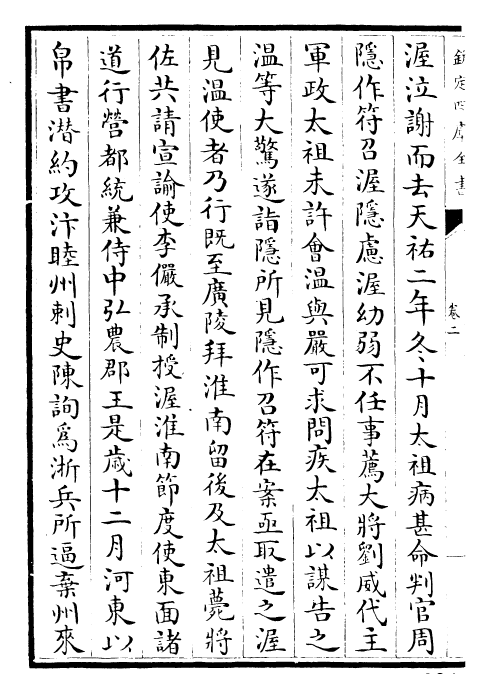 欽定四庫全書
卷二
渥泣謝而去天祐二年冬十月太祖病甚命判官周
隱作符召渥隱慮渥幼弱不任事薦大將劉威代主
軍政太祖未許會溫與嚴可求問疾太祖以謀告之
溫等大驚遂詣隱所見隱作召符在案亟取遣之渥
見溫使者乃行既至廣陵拜淮南留後及太祖薨將
佐共請宣諭使李儼承制授渥淮南節度使東面諸
道行營都統兼侍中弘農郡王是歳十二月河東以
帛書潛約攻汴睦州刺史陳詢為浙兵所逼棄州來